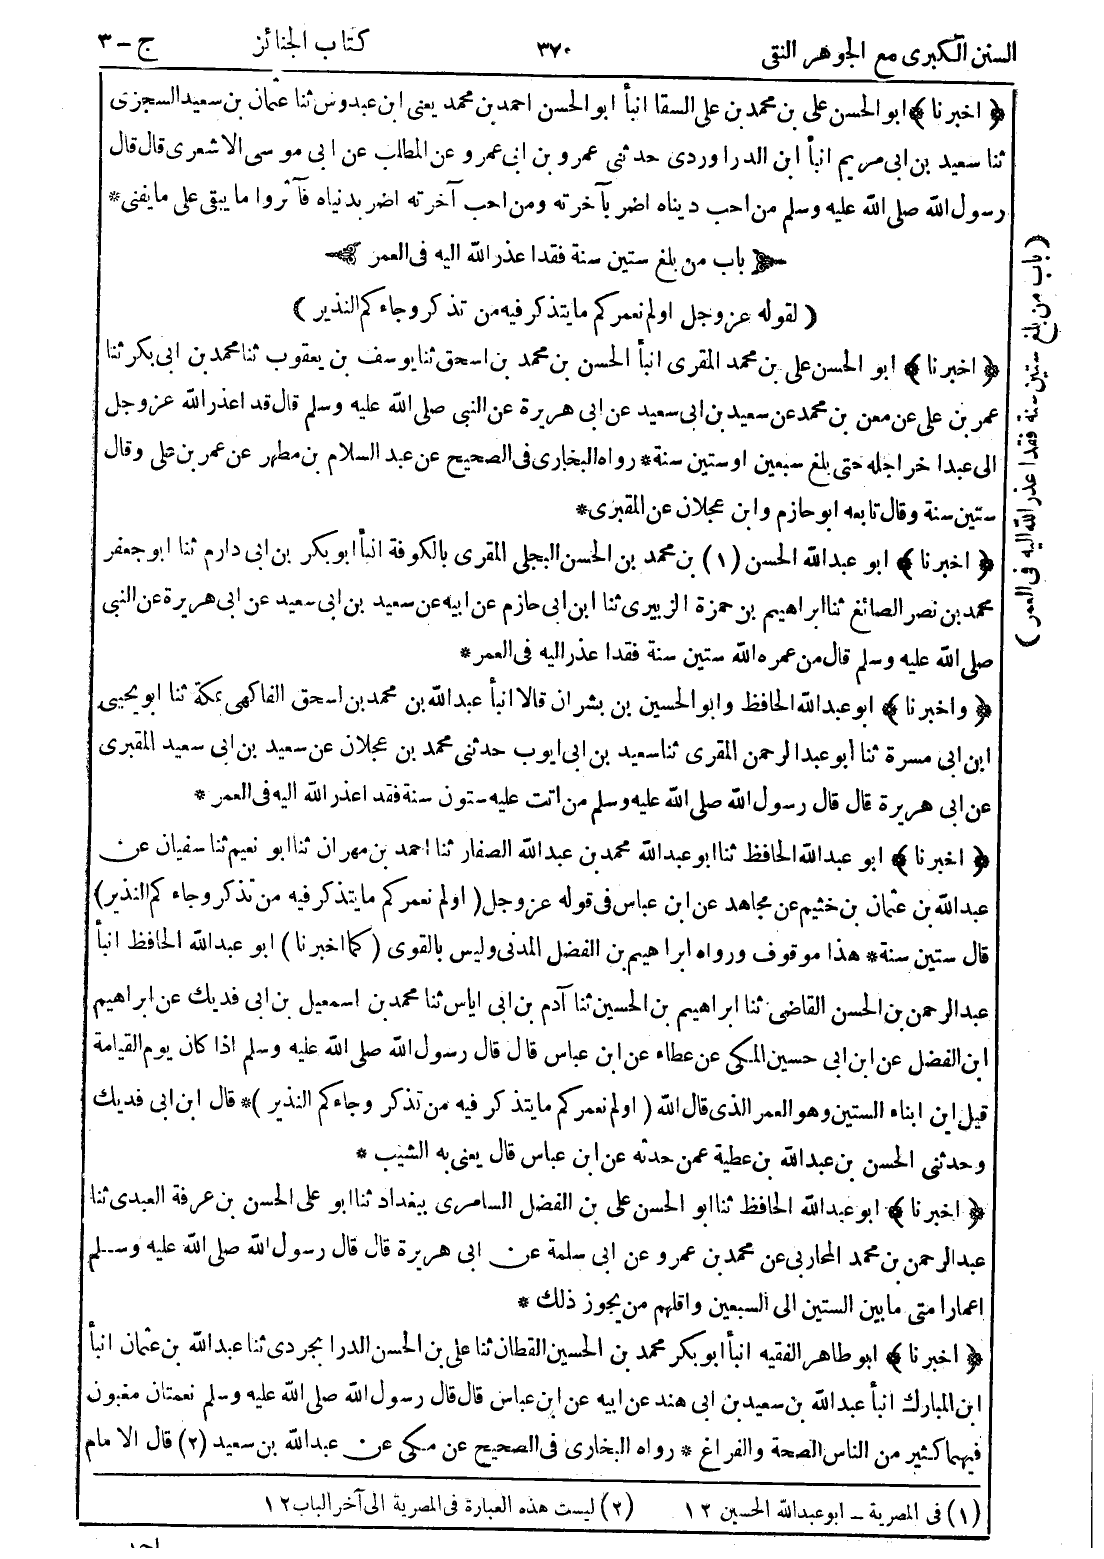 السنن الكبرى مع الجوهر النقى ٣٧٠ كتاب الجنائز ج - ٣
﴿ اخبرنا ﴾ ابو الحسن على بن محمد بن على السقا انبأ ابو الحسن احمد بن محمد يعنى ابن عبدوش ثنا عثمان بن سعيد السجزى
ثنا سعيد بن ابى مريم انبأ ابن الدراوردى حدثنى عمرو بن ابى عمرو عن المطلب عن ابى موسى الاشعرى قال قال
رسول الله صلى الله عليه وسلم من احب ديناه اضر بآخرته ومن احب آخرته اضر بدنياه فآثروا ما يبقى على ما يفنى *
باب من بلغ ستين سنة فقد اعذر الله اليه فى العمر
( لقوله عز وجل اولم نعمركم ما يتذكر فيه من تذكر وجاءكم النذير )
﴿ اخبرنا ﴾ ابو الحسن على بن محمد المقرى انبأ الحسن بن محمد بن اسحق ثنا يوسف بن يعقوب ثنا محمد بن ابى بكر ثنا
عمر بن على عن معن بن محمد عن سعيد بن ابى سعيد عن ابى هريرة عن النبى صلى الله عليه وسلم قال قد اعذر الله عز وجل
الى عبد اخر اجله حتى بلغ سبعين او ستين سنة * رواه البخارى فى الصحيح عن عبد السلام بن مطهر عن عمر بن على وقال
ستين سنة وقال تابعه ابو حازم وابن عجلان عن المقبرى *
﴿ اخبرنا ﴾ ابو عبدالله الحسن (١) بن محمد بن الحسن البجلى المقرى بالكوفة انبأ ابو بكر بن ابى دارم ثنا ابو جعفر
محمد بن نصر الصائغ ثنا ابراهيم بن حمزة الزبيرى ثنا ابن ابى حازم عن ابيه عن سعيد بن ابى سعيد عن ابى هريرة عن النبى
صلى الله عليه وسلم قال من عمره الله ستين سنة فقد اعذر اليه فى العمر *
﴿ واخبرنا ﴾ ابو عبدالله الحافظ وابو الحسين بن بشران قالا انبأ عبدالله بن محمد بن اسحق الفاكهى بمكة ثنا ابو يحيى
ابن ابى مسرة ثنا أبو عبدالرحمن المقرى ثنا سعيد بن ابى ايوب حدثنى محمد بن عجلان عن سعيد بن ابى سعيد المقبرى
عن ابى هريرة قال قال رسول الله صلى الله عليه وسلم من اتت عليه ستون سنة فقد اعذر الله اليه فى العمر *
﴿ اخبرنا ﴾ ابو عبدالله الحافظ ثنا ابو عبدالله محمد بن عبدالله الصفار ثنا احمد بن مهران ثنا ابو نعيم ثنا سفيان عن
عبدالله بن عثمان بن خثيم عن مجاهد عن ابن عباس فى قوله عز وجل ( اولم نعمركم ما يتذكر فيه من تذكر وجاءكم النذير )
قال ستين سنة * هذا موقوف ورواه ابراهيم بن الفضل المدنى وليس بالقوى ( كما اخبرنا ) ابو عبدالله الحافظ انبأ
عبدالرحمن بن الحسن القاضى ثنا ابراهيم بن الحسين ثنا آدم بن ابى اياس ثنا محمد بن اسمعيل بن ابى فديك عن ابراهيم
ابن الفضل عن ابن ابى حسين المكى عن عطاء عن ابن عباس قال قال رسول الله صلى الله عليه وسلم اذا كان يوم القيامة
قيل اين ابناء الستين وهو العمر الذى قال الله ( اولم نعمركم ما يتذكر فيه من تذكر وجاءكم النذير ) * قال ابن ابى فديك
وحدثنى الحسن بن عبدالله بن عطية عمن حدثه عن ابن عباس قال يعنى به الشيب *
﴿ اخبرنا ﴾ ابو عبدالله الحافظ ثنا ابو الحسن على بن الفضل السامرى ببغداد ثنا ابو على الحسن بن عرفة العبدى ثنا
عبدالرحمن بن محمد المحاربى عن محمد بن عمرو عن ابى سلمة عن ابى هريرة قال قال رسول الله صلى الله عليه وسلم
اعمار امتى ما بين الستين الى السبعين واقلهم من يجوز ذلك *
﴿ اخبرنا ﴾ ابو طاهر الفقيه انبأ ابو بكر محمد بن الحسين القطان ثنا على بن الحسن الدرابجردى ثنا عبدالله بن عثمان انبأ
ابن المبارك انبأ عبدالله بن سعيد بن ابى هند عن ابيه عن ابن عباس قال قال رسول الله صلى الله عليه وسلم نعمتان مغبون
فيهما كثير من الناس الصحة والفراغ * رواه البخارى فى الصحيح عن مكى عن عبدالله بن سعيد (٢) قال الامام
(١) فى المصرية - ابو عبدالله الحسين ١٢ (٢) ليست هذه العبارة فى المصرية الى آخر الباب ١٢
( باب من بلغ ستين سنة فقد اعذر الله اليه فى العمر )